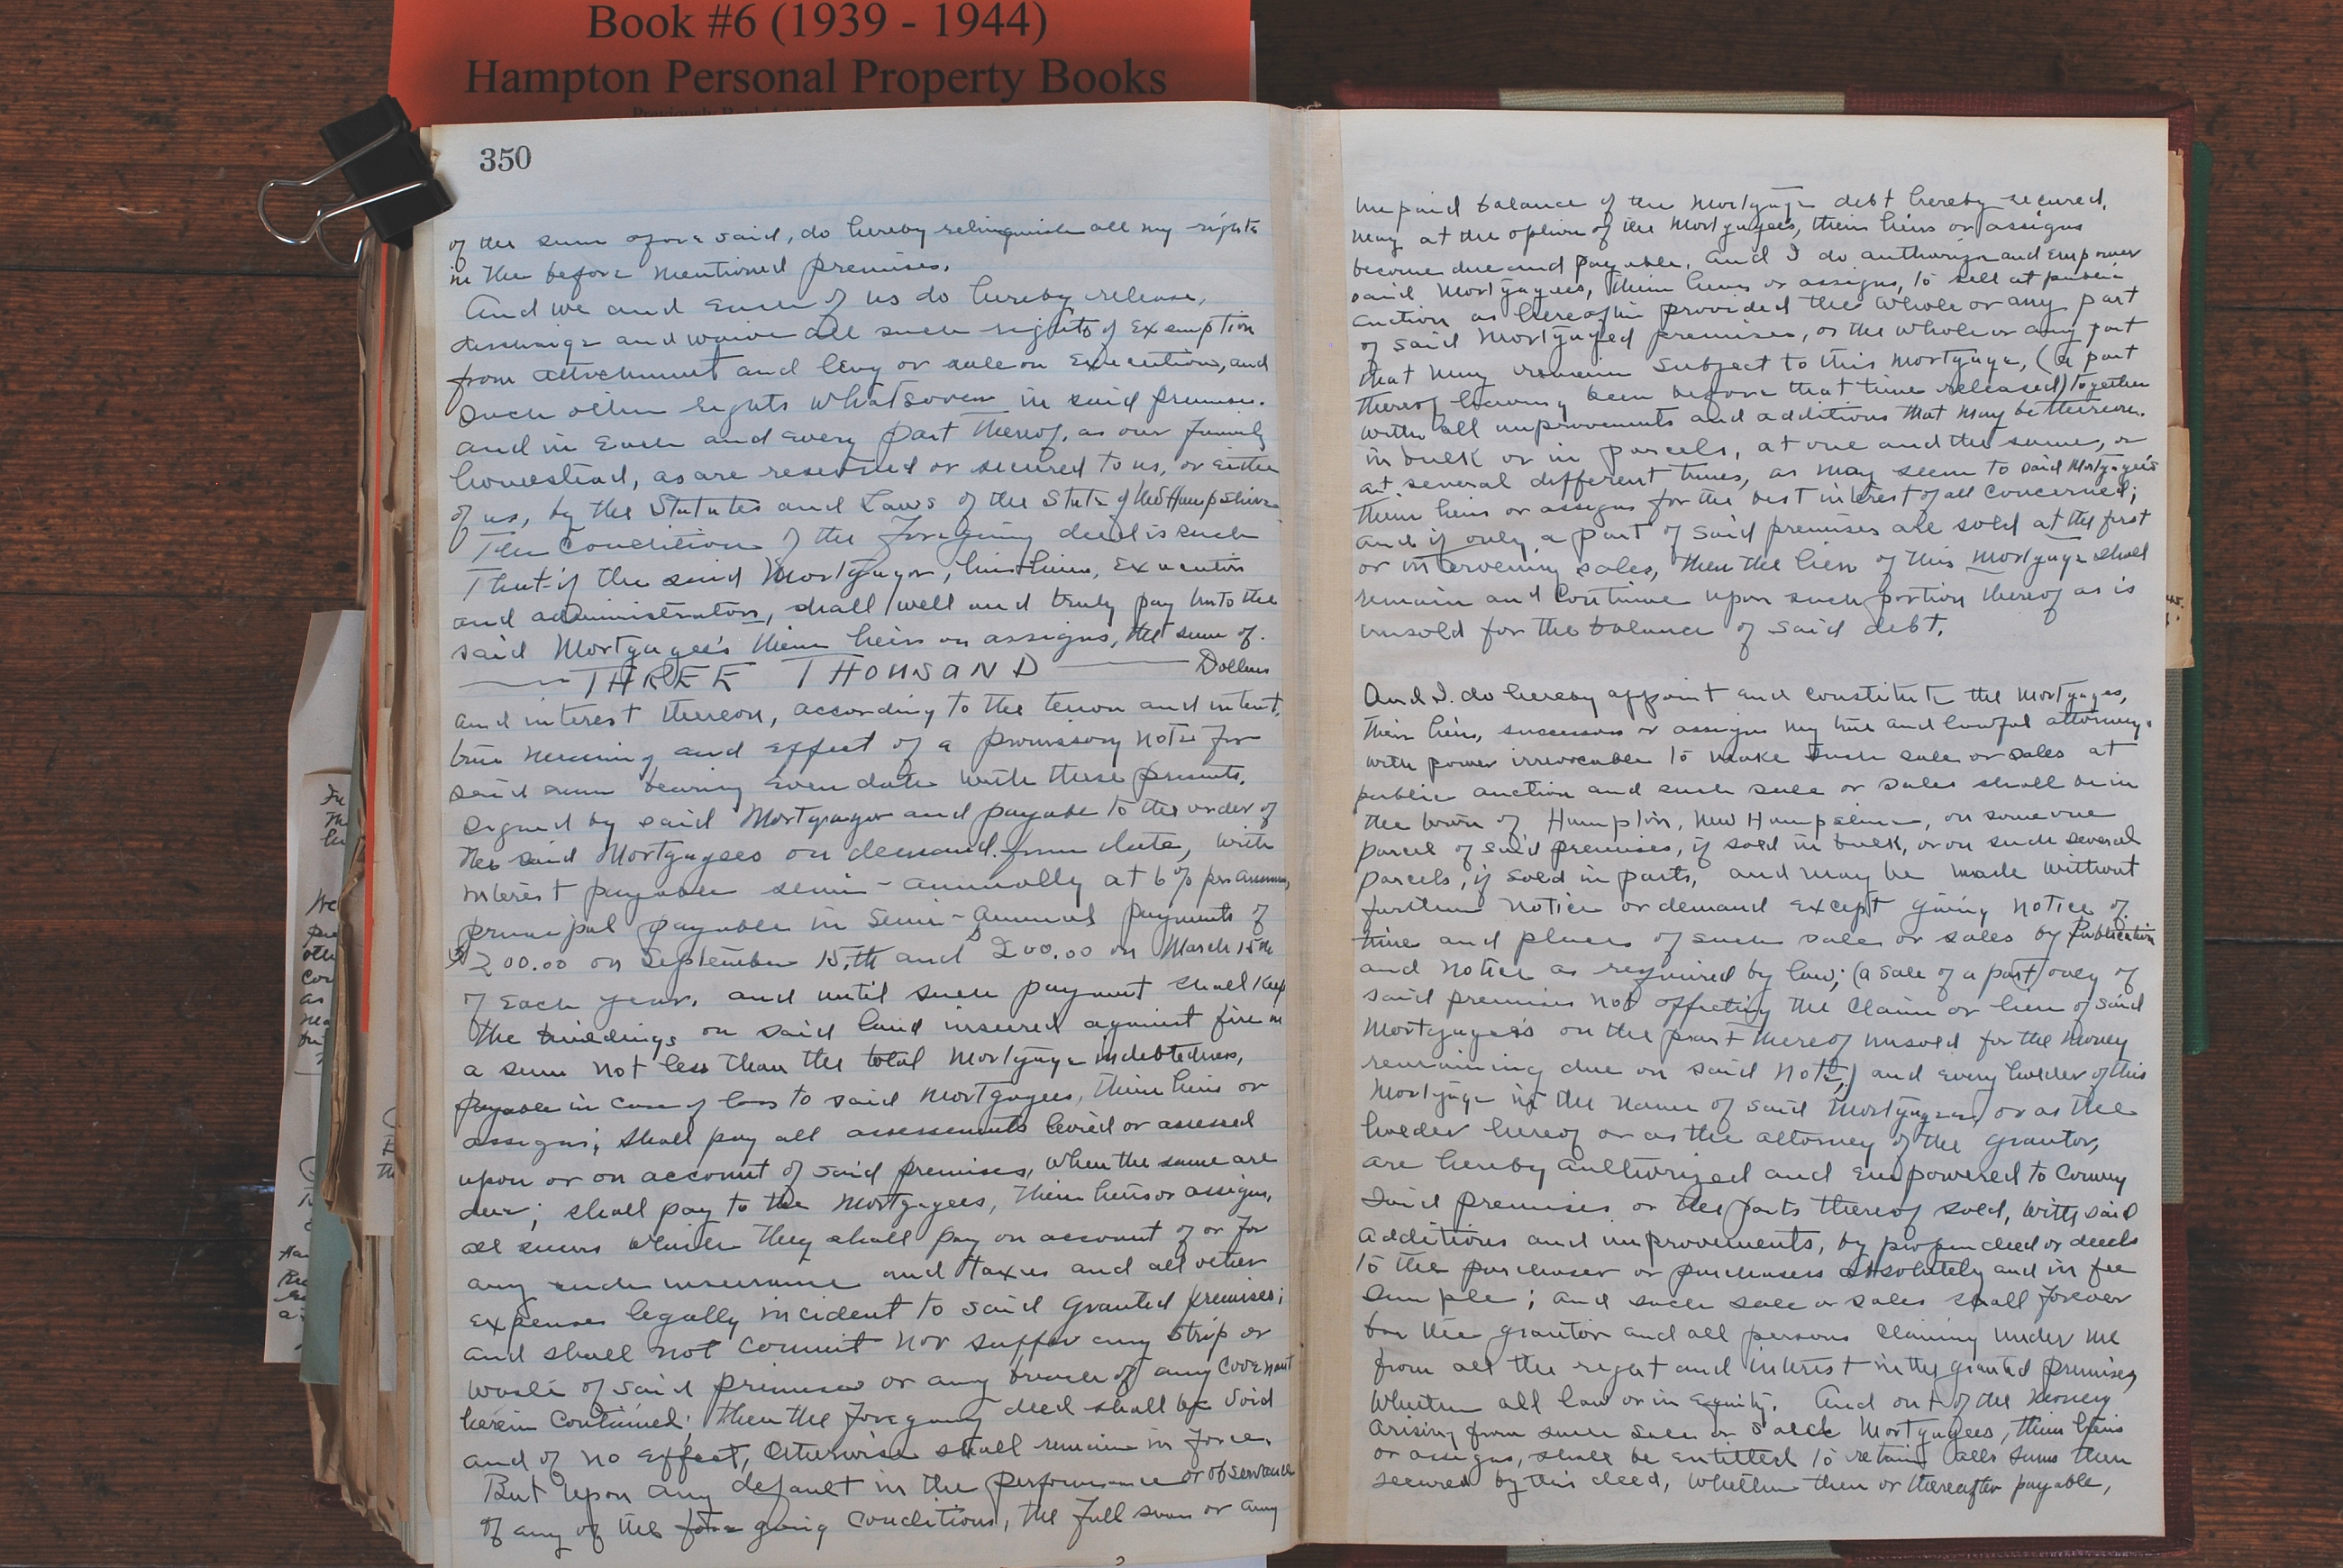 Book #6 (1939 - 1944)
Hampton Personal Property Books
350
of the sum aforesaid, do hereby relinquish all my rights
in the before mentioned premises.
And we and each of us do hereby release,
discharge and waive all such rights of exemption
from attachment and levy or sale on execution, and
such other rights whatsoever in said premises.
and in each and every part thereof, as our family
homestead, as are reserved or secured to us, or either
of us, by the Statutes and Laws of the State of New Hampshire
The Condition of the foregoing deed is such
That if the said Mortgagor, his heirs, executors
and administrators, shall well and truly pay unto the
said Mortgagee's their heirs or assigns, the sum of
THREE THOUSAND Dollars
and interest thereon, according to the tenor and intent,
true meaning and effect of a promissory note for
said sum bearing even date with these presents,
signed by said Mortgagor and payable to the order of
the said Mortgagees on demand from date, with
interest payable semi-annually at 6% per annum,
principal payable in semi-annual payments of
$200.00 on September 15.th and 200.00 on March 15th
of each year. and until such payment shall keep
the buildings on said land insured against fire in
a sum not less than the total Mortgage indebtedness,
payable in case of loss to said Mortgagees, their heirs or
assigns; shall pay all assessments levied or assessed
upon or on account of said premises, when the same are
due; shall pay to the Mortgagees, their heirs or assigns,
all sums which they shall pay on account of or for
any such insurance and taxes and all other
expenses legally incident to said granted premises;
and shall not commit nor suffer any strip or
waste of said premises or any breach of any covenant
herein contained; then the foregoing deed shall be void
and of no effect, otherwise shall remain in force.
But upon any default in the performance or observance
of any of the foregoing conditions, the full sum or any
unpaid balance of the Mortgage debt hereby secured,
may at the option of the Mortgagees, their heirs or assigns
become due and payable. And I do authorize and empower
said Mortgagees, their heirs or assigns, to sell at public
auction as hereafter provided the whole or any part
of said Mortgaged premises, or the whole or any part
that may remain subject to this mortgage, (a part
thereof having been before that time released) together
with all improvements and additions that may be thereon.
in bulk or in parcels, at one and the same, or
at several different times, as may seem to said Mortgagees
their heirs or assigns for the best interest of all concerned;
and if only a part of said premises are sold at the first
or intervening sales, then the lien of this mortgage shall
remain and continue upon such portion thereof as is
unsold for the balance of said debt.
And I do hereby appoint and constitute the Mortgages,
their heirs, successors or assigns my true and lawful attorney,
with power irrevocable to make such sale or sales at
public auction and such sale or sales shall be in
the town of Hampton, New Hampshire, on some one
parcel of said premises, if sold in bulk, or on such several
parcels, if sold in parts, and may be made without
further notice or demand except giving notice of
time and place of such sale or sales by publication
and notice as required by law; (a sale of a part only of
said premises not affecting the claim or lien of said
Mortgagees on the part thereof unsold for the money
remaining due on said note,) and every holder of this
Mortgage in the name of said Mortgagees or as the
holder hereof or as the attorney of the grantor,
are hereby authorized and empowered to convey
said premises or the parts thereof sold, with said
additions and improvements, by proper deed or deeds
to the purchaser or purchasers absolutely and in fee
simple; and such sale or sales shall forever
bar the grantor and all persons claiming under me
from all the right and interest in the granted premises,
whether all law or in equity. And out of the money
arising from such sale or sales Mortgagees, their heirs
or assigns, shall be entitled to retain all sums then
secured by this deed, whether then or thereafter payable,